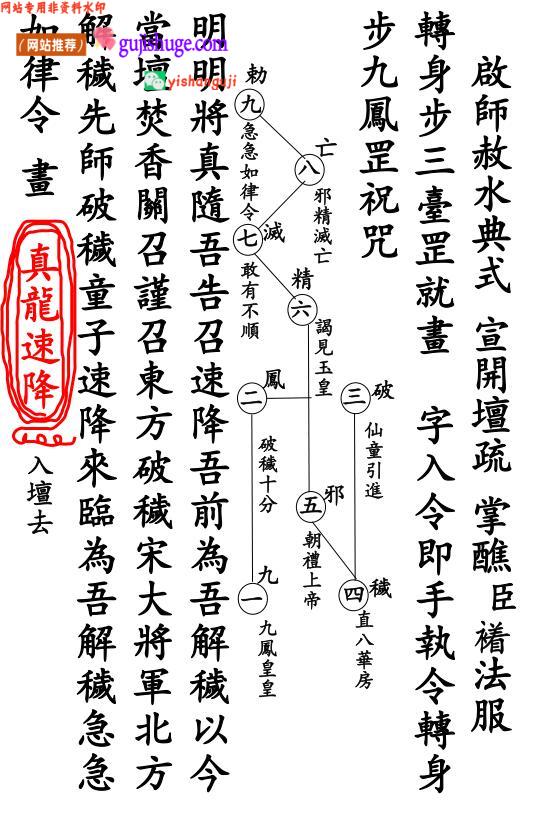 网站专用非资料水印
（网站推荐）
gujishuge.com
yishanguji
啟師赦水典式 宣開壇疏 掌醮臣襏法服
轉身步三臺罡就畫 字入令即手執令轉身
步九鳳罡祝咒
一 九 九鳳皇皇
二 鳳 破穢十分
三 破 仙童引進
四 穢 直八華房
五 邪 朝禮上帝
六 精 謁見玉皇
七 滅 敢有不順
八 亡 邪精滅亡
九 勅 急急如律令
明明將真隨吾告召速降吾前為吾解穢以今
當壇焚香關召謹召東方破穢宋大將軍北方
解穢先師破穢童子速降來臨為吾解穢急急
如律令 畫
真龍速降
入壇去